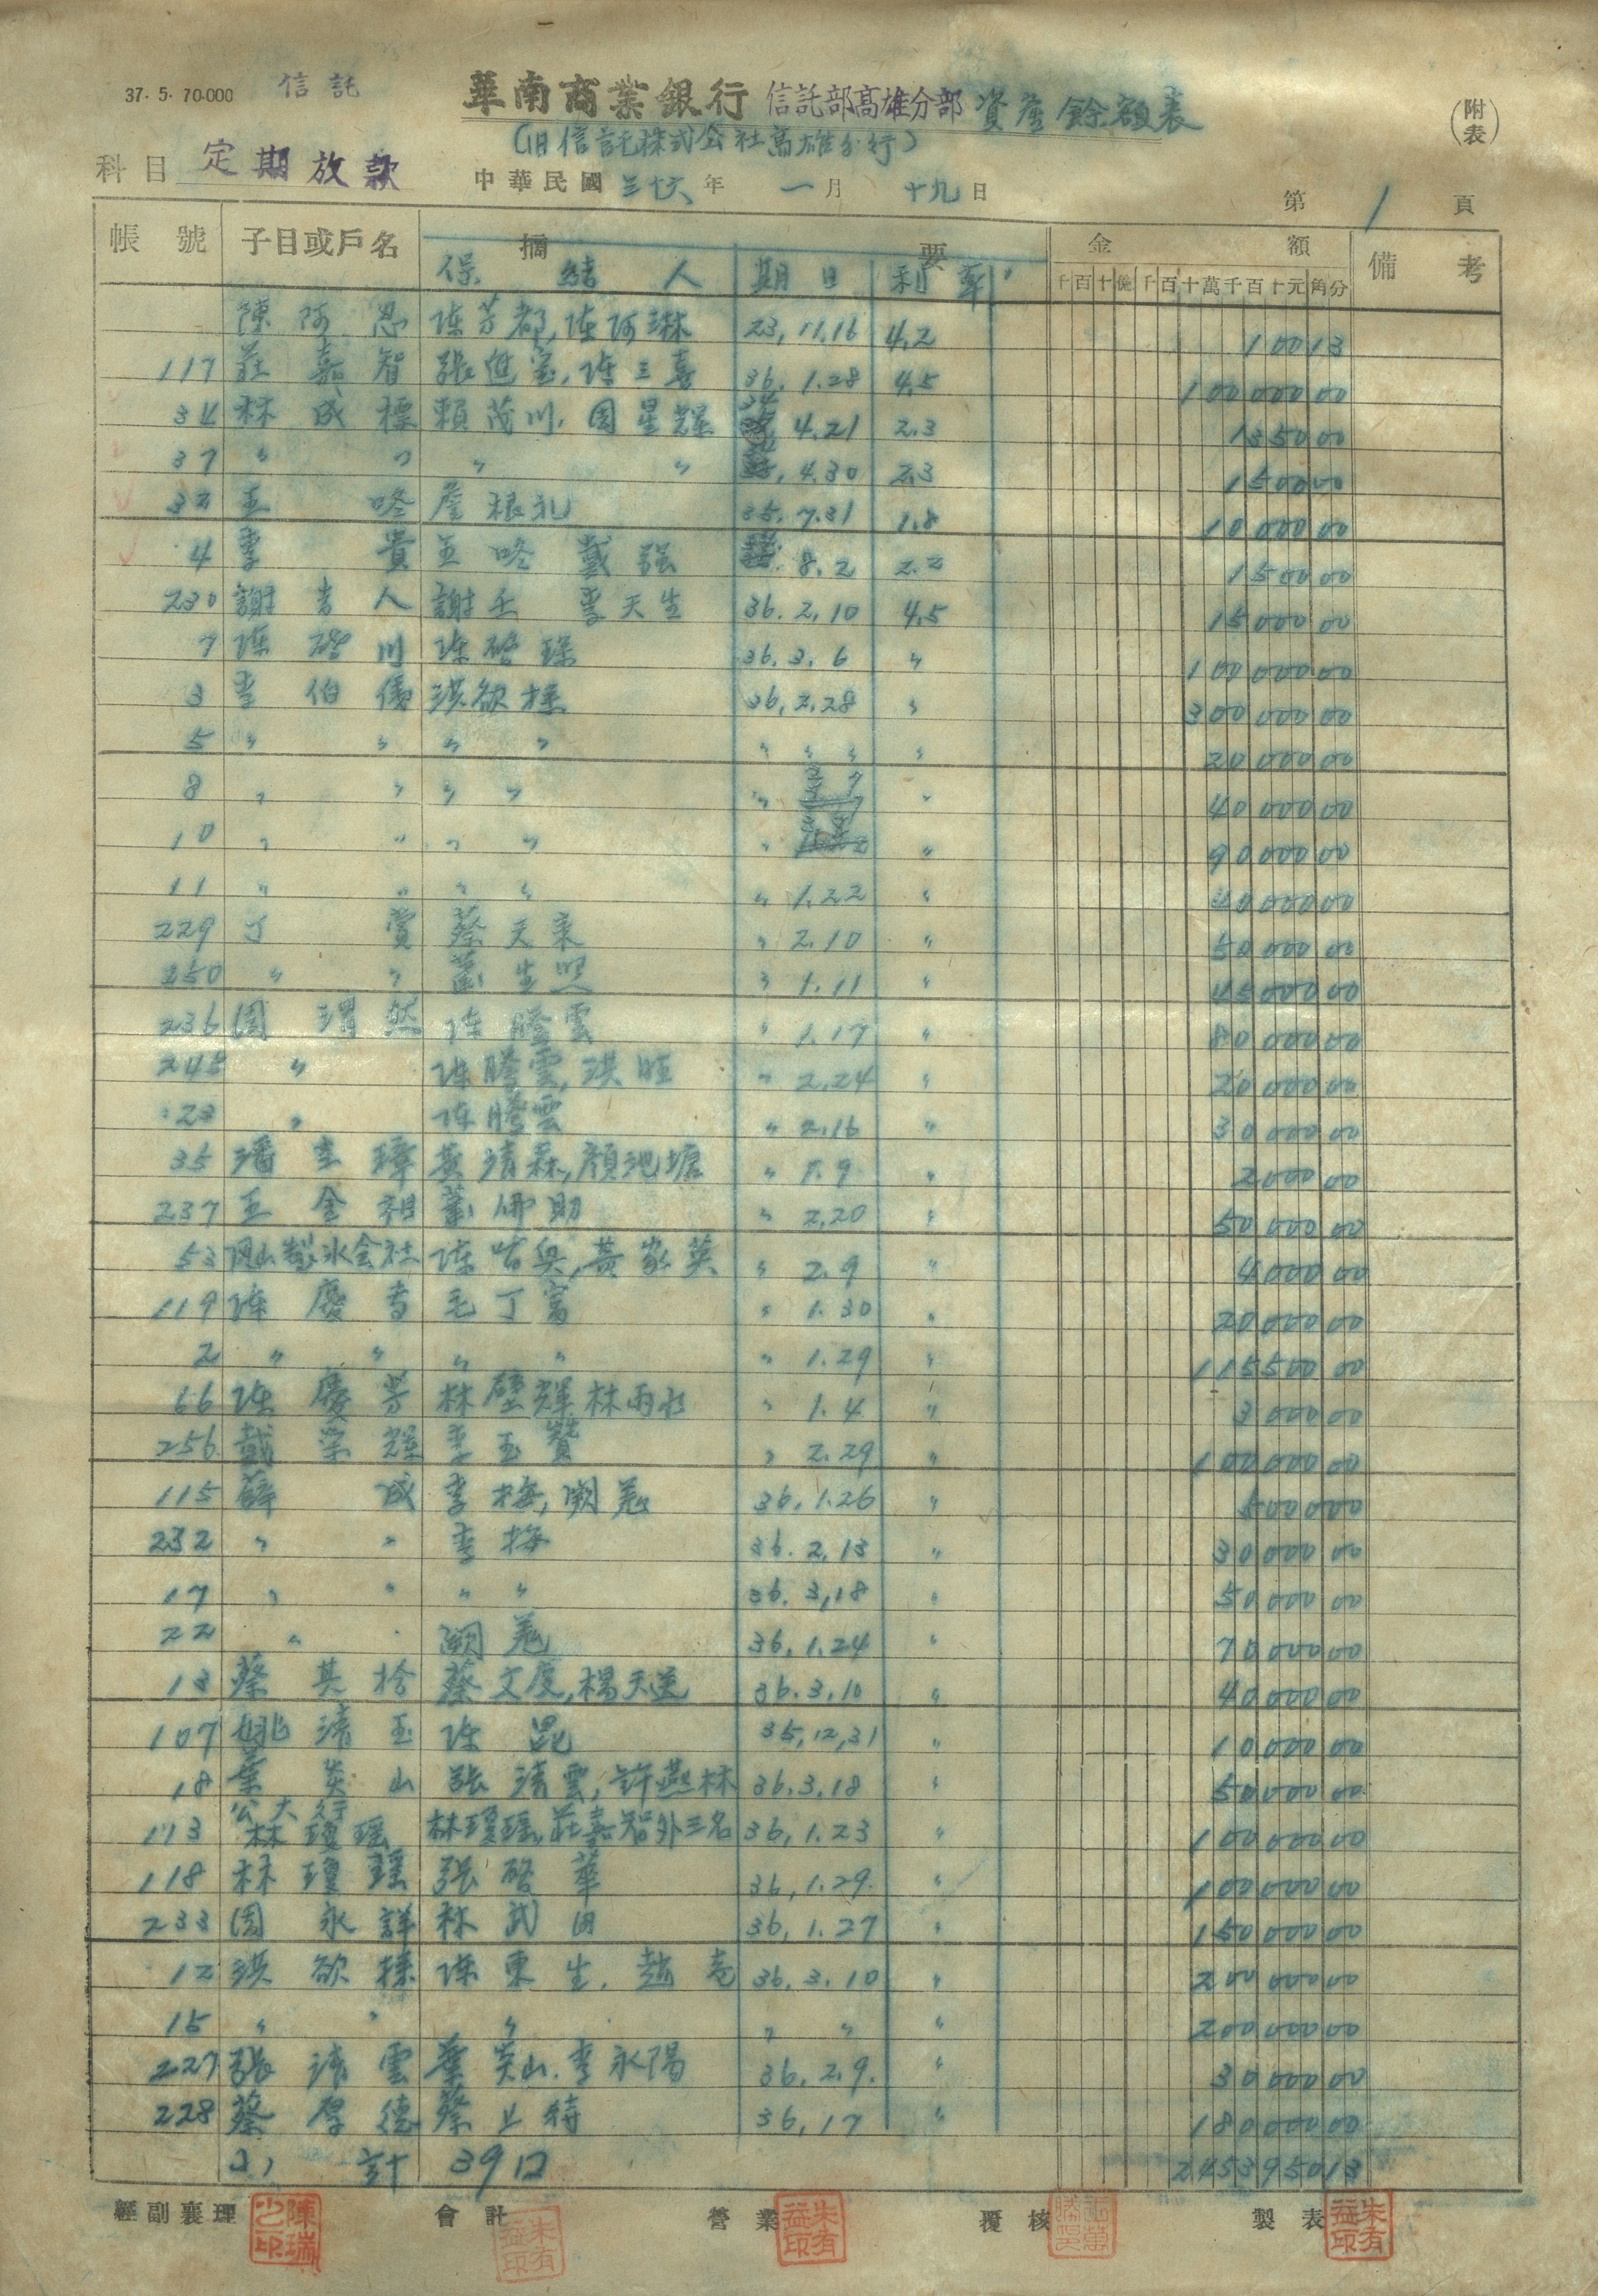 37. 5. 70.000 信託 華南商業銀行 信託部高雄分部 資產餘額表 (附表)
(旧信託株式会社高雄分行)
科目 定期放款 中華民國 三十六 年 一 月 十九 日 第 1 頁
帳號 子目或戶名 摘要 金額 備考
保結人 期日 利率 千百十億千百十萬千百十元角分
陳阿 陳芳都, 陳阿琳 23, 11.16 4.2 100 13
117 莊嘉智 張進宝, 陳三喜 36. 1.28 4.5 100 000 00
34 林成標 賴茂川, 周星輝 34 4.21 2.3 1350 00
37 〃 〃 〃 〃 4.30 2.3 1500 00
32 王咚 詹根礼 35. 7.31 1.8 10 000 00
4 李貴 王咚 戴强 8.2 2.2 1500 00
230 謝吉人 謝壬 李天生 36. 2.10 4.5 15000 00
7 陳啓川 陳啓琛 36. 3. 6 〃 100 000 00
3 李伯 洪欲 36, 2.28 〃 300 000 00
5 〃 〃 〃 〃 〃 〃 〃 〃 20 000 00
8 〃 〃 〃 〃 〃 3 7 〃 40 000 00
10 〃 〃 〃 〃 〃 〃 90 000 00
11 〃 〃 〃 〃 〃 1.22 〃 40 000 00
229 丁賞 蔡天来 〃 2.10 〃 50 000 00
250 〃 〃 生 〃 1.11 〃 45000 00
236 周渭然 陳騰雲 〃 1.17 〃 80 000 00
245 〃 陳騰雲, 洪旺 〃 2.24 〃 20 000 00
23 〃 陳騰雲 〃 2.16 〃 30 000 00
35 潘圭璋 黃清森, 顏池塘 〃 1.9 〃 2000 00
237 王金祖 佛助 〃 2.20 〃 50 000 00
53 岡山製氷会社 陳皆興, 黃家英 〃 2.9 〃 4000 00
119 陳慶芳 毛丁富 〃 1.30 〃 20 000 00
2 〃 〃 〃 〃 〃 1.29 〃 115500 00
66 陳慶芳 林壁輝 林雨水 〃 1.4 〃 3 000 00
256 戴榮輝 李玉贊 〃 2.29 〃 100 000 00
115 薛成 李梅, 闕 36. 1.26 〃 5000 00
232 〃 〃 李梅 36. 2.13 〃 30 000 00
17 〃 〃 〃 〃 36. 3.18 〃 50 000 00
22 〃 闕 36. 1.24 〃 70 000 00
13 蔡其拾 蔡文度, 楊天送 36. 3.10 〃 40 000 00
107 姚清玉 陳昆 35, 12, 31 〃 10 000 00
18 葉炎山 張清雲, 許燕林 36. 3.18 〃 50 000 00
公大行
113 林瓊瑤 林瓊瑤, 莊嘉智外三名 36, 1.23 〃 100 000 00
118 林瓊瑤 張啓華 36, 1.29. 〃 100 000 00
233 周永詳 林武田 36, 1.27 〃 150 000 00
12 洪欲 陳東生. 趙 36, 3. 10 〃 200 000 00
15 〃 〃 〃 〃 〃 〃 200 000 00
227 張清雲 葉炎山. 李永陽 36, 2.9. 〃 30 000 00
228 蔡厚德 蔡止特 36, 17 〃 180 000 00
小計 39口 2453950 13
經副襄理 會計 營業 覆核 製表
陳瑞 朱有益印 朱有益印 朱有益印